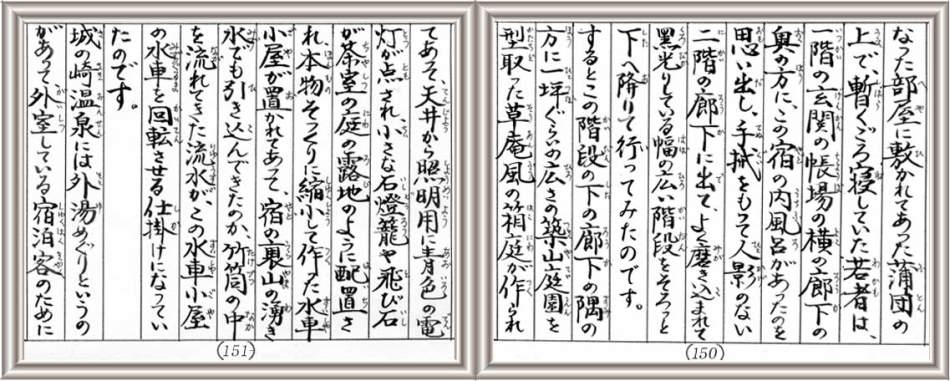 なった部屋に敷かれてあった蒲団の
上で、暫くごろ寝していた若者は、
一階の玄関の帳場の横の廊下の
奥の方に、この宿の内風呂があったのを
思い出し、手拭をもって人影のない
二階の廊下に出て、よく磨き込まれて
黒光りしている幅の広い階段をそろっと
下へ降りて行ってみたのです。
するとこの階段の下の廊下の隅の
方に一坪ぐらいの広さの築山庭園を
型取った草庵風の箱庭が作られ
(150)
てあって、天井から照明用に青色の電
灯が点され、小さな石燈籠や飛び石
が茶室の庭の露地のように配置さ
れ、本物そっくりに縮小して作った水車
小屋が置かれてあって、宿の裏山の湧き
水でも引き込んできたのか、竹筒の中
を流れてきた流水が、この水車小屋
の水車を回転させる仕掛けになってい
たのです。
城の崎温泉には外湯めぐりというの
があって外室している宿泊客のために
(151)